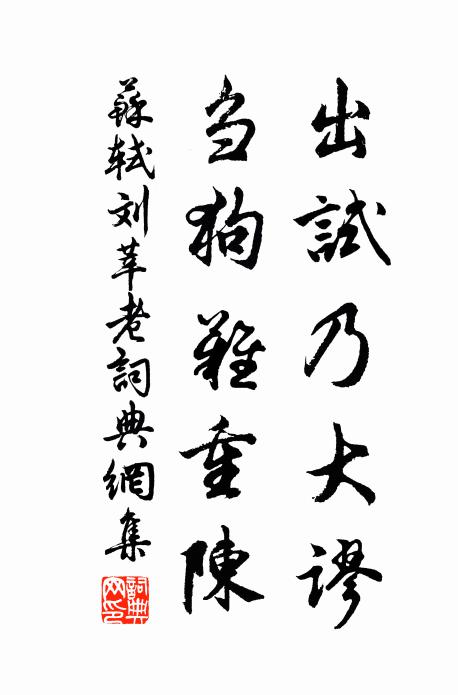 出試乃大謬
芻狗難重陳
蘇軾刘莘老詞典網集
詞典网印